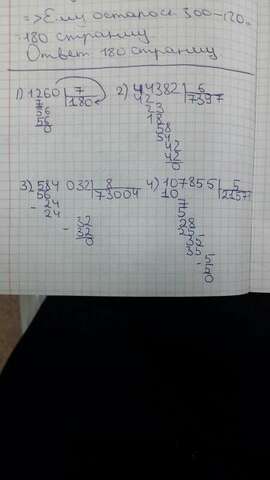 => Ему осталось 300-120=
180 страниц
Ответ 180 страниц
1) 1260 | 7
7 | 180
56
56
0
2) 44382 | 6
42 | 7397
23
18
58
54
42
42
0
3) 584 032 | 8
56 | 73004
- 24
24
- 32
32
0
4) 107855 | 5
10 | 21571
7
5
28
25
35
35
- 5
5
0